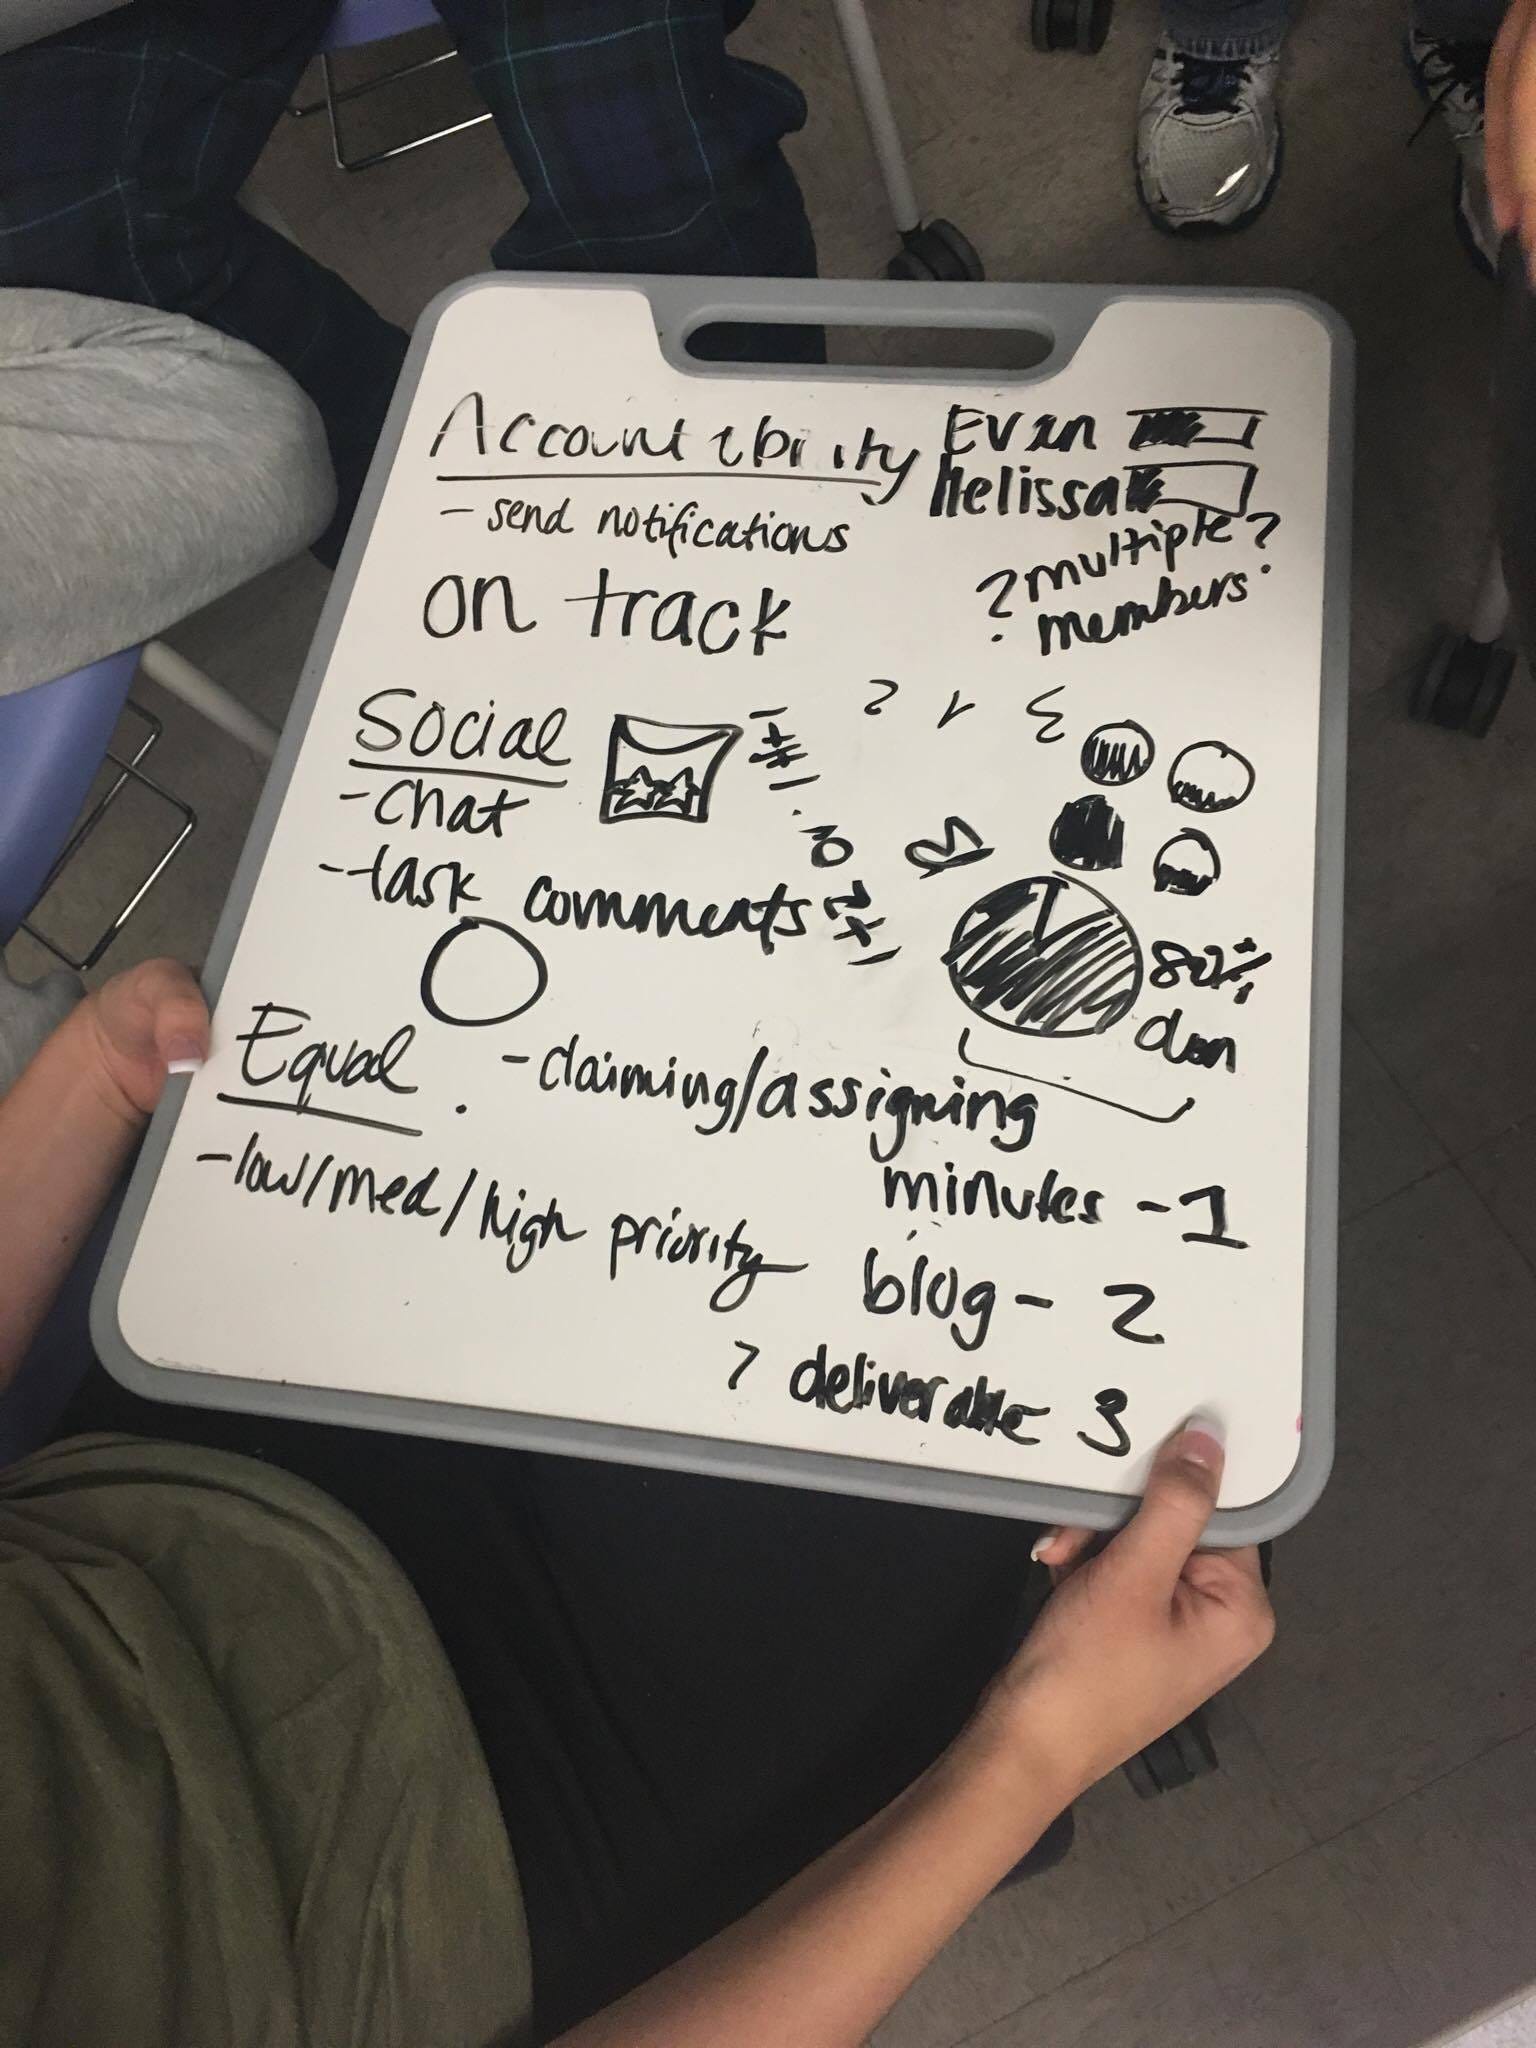 Accountability
- send notifications
on track
Evan
Melissa
? multiple ?
members
Social
- chat
- task comments
2 1 3
80%
Equal
- claiming/assigning
- low/med/high priority
minutes - 1
blog - 2
? deliverable 3